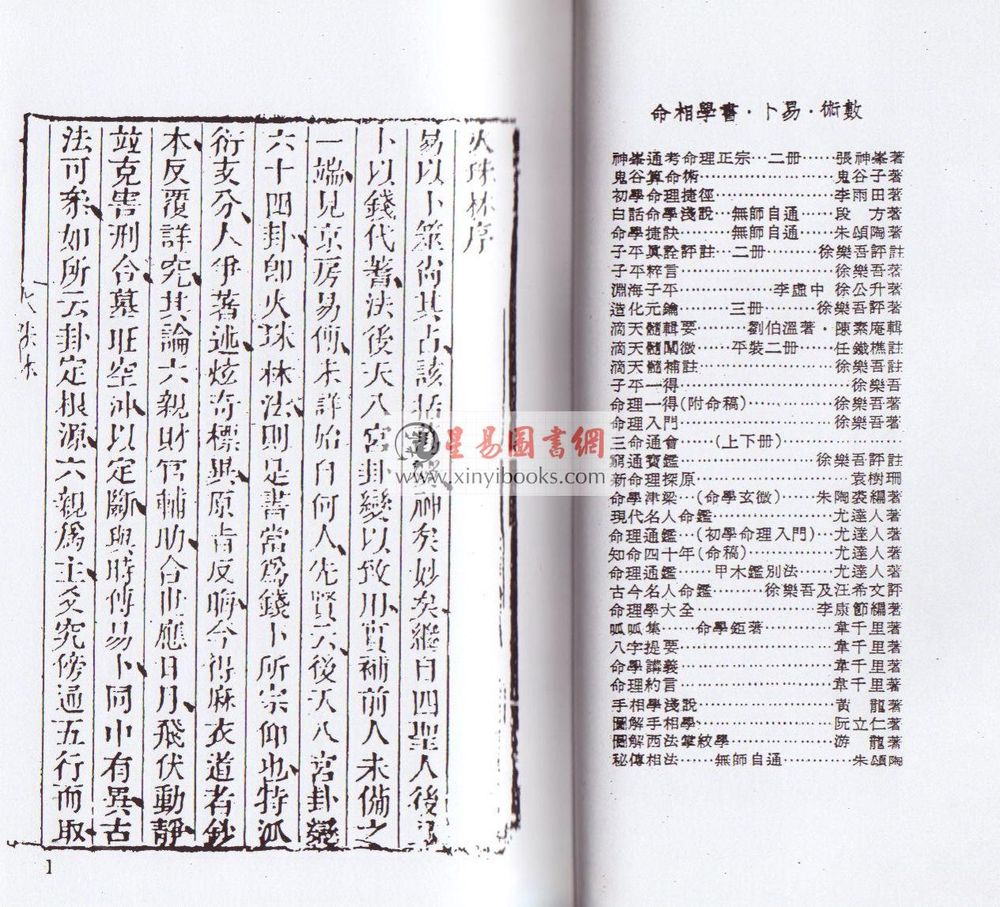 火珠林序
易以卜筮尚其占該括萬象神矣妙矣繼自四聖人後
卜以錢代蓍法後天八宮卦變以致用實補前人未備之
一端見京房易傳未詳始自何人先賢云後天八宮卦變
六十四卦即火珠林法則是書當為錢卜所宗仰也特派
衍支分人爭著述炫奇標異原旨反晦今得麻衣道者鈔
本反覆詳究其論六親財官輔助合世應日月飛伏動靜
並克害刑合墓旺空沖以定斷與時傳易卜同中有異古
法可參如所云卦定根源六親為主爻究傍通五行而取
火珠林
1
命相學書・卜易・術數
神峯通考命理正宗…二冊……張神峯著
鬼谷算命術………………鬼谷子著
初學命理捷徑……………李雨田著
白話命學淺說…無師自通……段 方著
命學捷訣……無師自通……朱頌陶著
子平眞詮評註…二冊……徐樂吾評註
子平粹言…………………徐樂吾著
淵海子平……………李虛中 徐公升著
造化元鑰………三冊……徐樂吾評著
滴天髓輯要……劉伯溫著・陳素庵輯
滴天髓闡微……平裝二冊……任鐵樵註
滴天髓補註………………徐樂吾註
子平一得…………………徐樂吾
命理一得(附命稿)…………徐樂吾著
命理入門…………………徐樂吾著
三命通會……(上下冊)……………
窮通寶鑑………………徐樂吾評註
新命理探原………………袁樹珊
命學津梁…(命學玄微)……朱陶裘編著
現代名人命鑑……………尤達人著
命理通鑑…(初學命理入門)…尤達人著
知命四十年(命稿)…………尤達人著
命理通鑑……甲木鑑別法……尤達人著
古今名人命鑑……徐樂吾及汪希文評
命理學大全……………李康節編著
呱呱集……命學鉅著………韋千里著
八字提要…………………韋千里著
命學講義…………………韋千里著
命理約言…………………韋千里著
手相學淺說………………黃 龍著
圖解手相學………………阮立仁著
圖解西法掌紋學……………游 龍著
秘傳相法……無師自通………朱頌陶
星易圖書網
www.xinyibooks.com